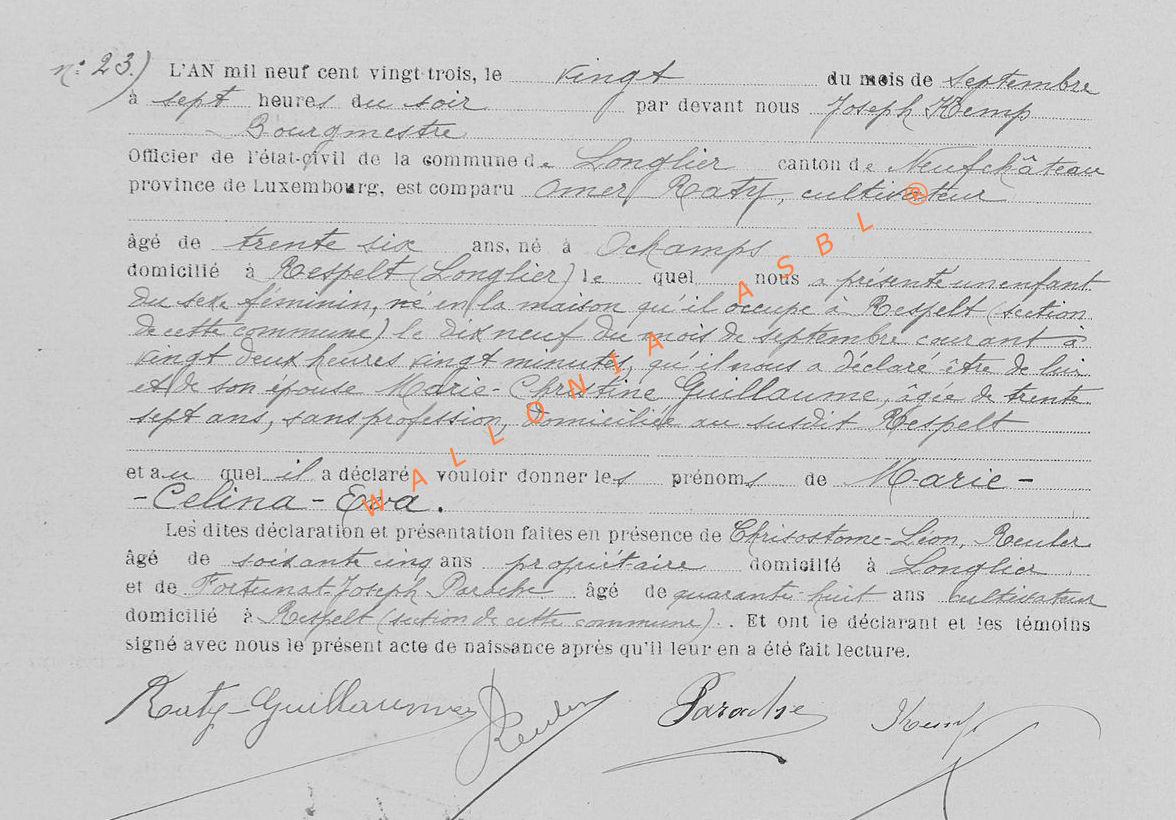 n° 23.) L'AN mil neuf cent vingt trois, le vingt du mois de septembre
à sept heures du soir par devant nous Joseph Kemp
Bourgmestre
Officier de l'état-civil de la commune de Longlier canton de Neufchâteau
province de Luxembourg, est comparu Omer Raty, cultivateur
âgé de trente six ans, né à Ochamps
domicilié à Respelt (Longlier) le quel nous a présenté un enfant
du sexe féminin, né en la maison qu'il occupe à Respelt (section
de cette commune) le dix neuf du mois de septembre courant à
vingt deux heures vingt minutes, qu'il nous a déclaré être de lui
et de son épouse Marie-Christine Guillaume, âgée de trente
sept ans, sans profession, domiciliée au susdit Respelt
et au quel il a déclaré vouloir donner les prénoms de Marie-
-Celina-Eva.
Les dites déclaration et présentation faites en présence de Chrisostome-Léon, Reuler
âgé de soixante cinq ans propriétaire domicilié à Longlier
et de Fortunat-Joseph Parache âgé de quarante-huit ans cultivateur
domicilié à Respelt (section de cette commune). Et ont le déclarant et les témoins
signé avec nous le présent acte de naissance après qu'il leur en a été fait lecture.
Raty-Guillaume Reuler Parache Kemp
WALLONIA ASBL ®